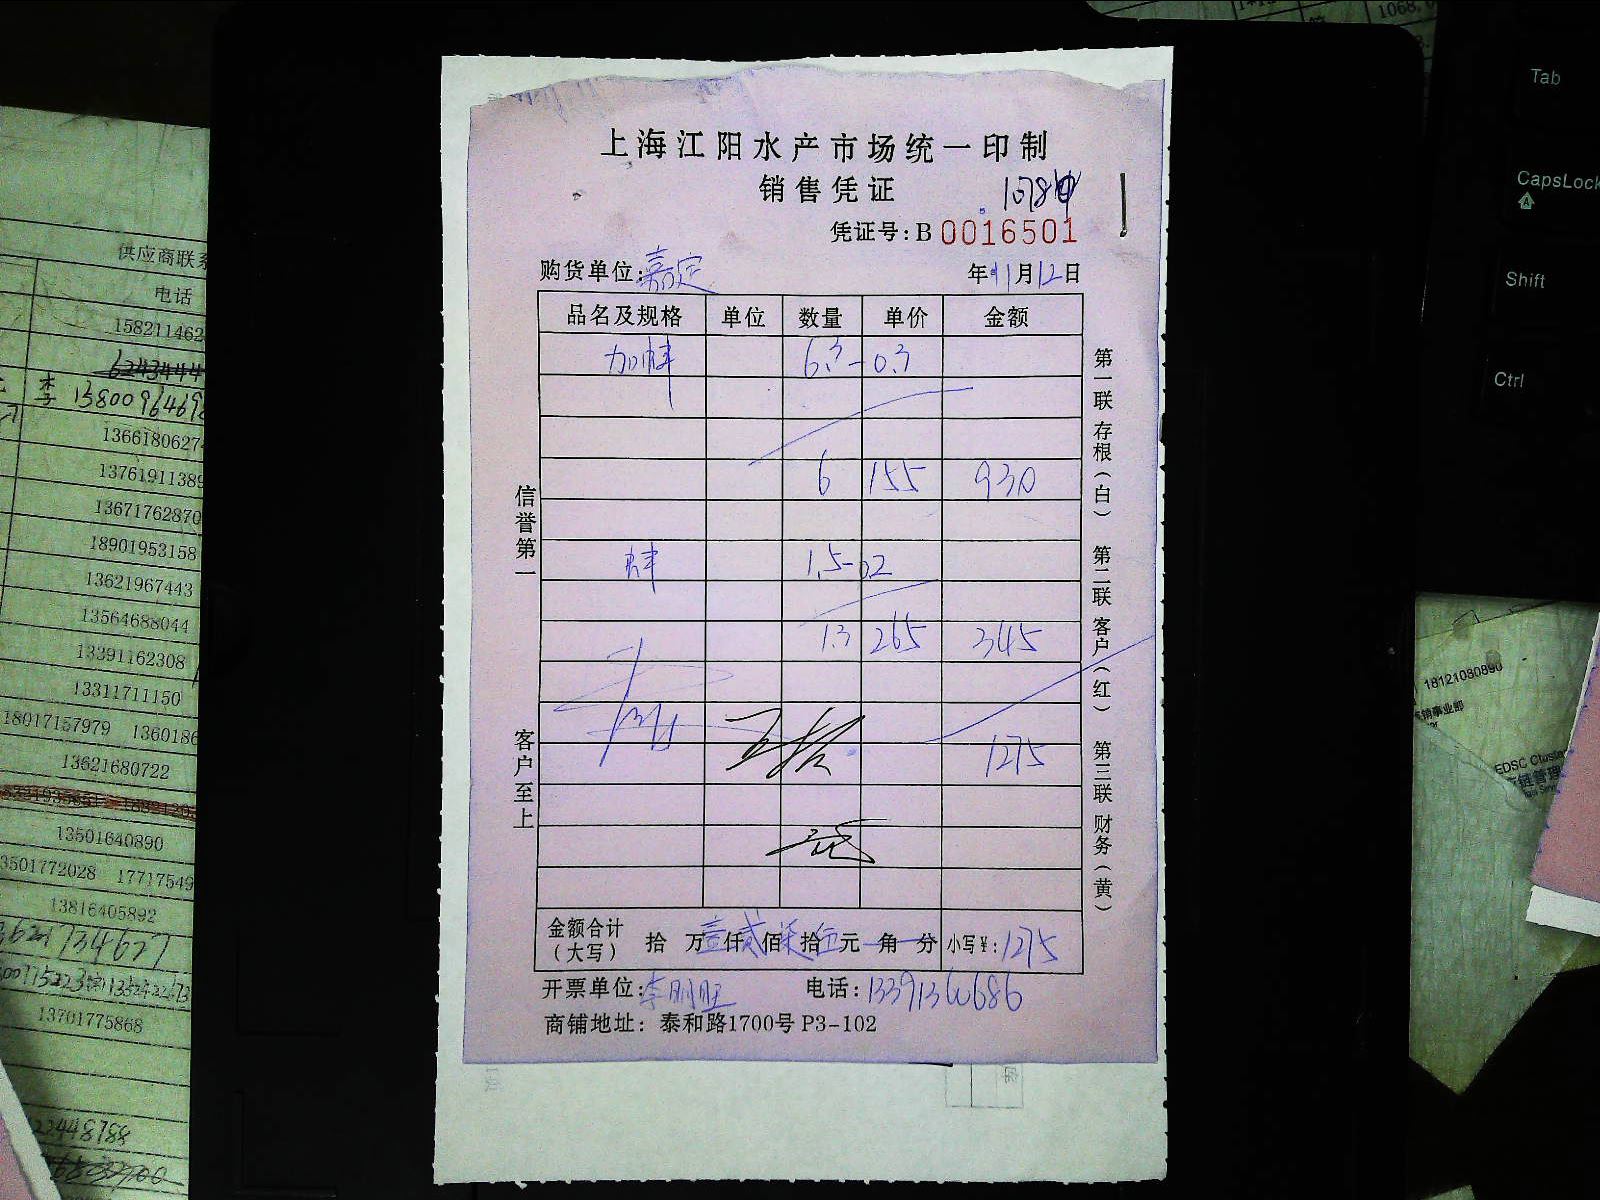 上海江阳水产市场统一印制
销售凭证
凭证号: B 0016501
购货单位: 嘉定 年 11 月 12 日
品名及规格 单位 数量 单价 金额
加蚌 6.3-0.3
6 155 930
蚌 1.5-0.2
1.3 265 345
1275
金额合计(大写) 拾 万 壹 仟 贰 佰 柒 拾 伍 元 角 分 小写¥: 1275
开票单位: 李刚旺 电话:
商铺地址: 泰和路1700号 P3-102
信誉第一
客户至上
第一联 存根(白) 第二联 客户(红) 第三联 财务(黄)
供应商联系
电话
158211462
6243444
李 13800964698
1366180627
1376191138
13671762870
18901953158
13621967443
13564688044
13391162308
13311711150
18017157979 1360186
13621680722
13501640890
3501772028 17717549
13816405892
13701775868
1068.
Tab
CapsLock
Shift
Ctrl
18121080890
销事业部
EDSC Cluste
链管理